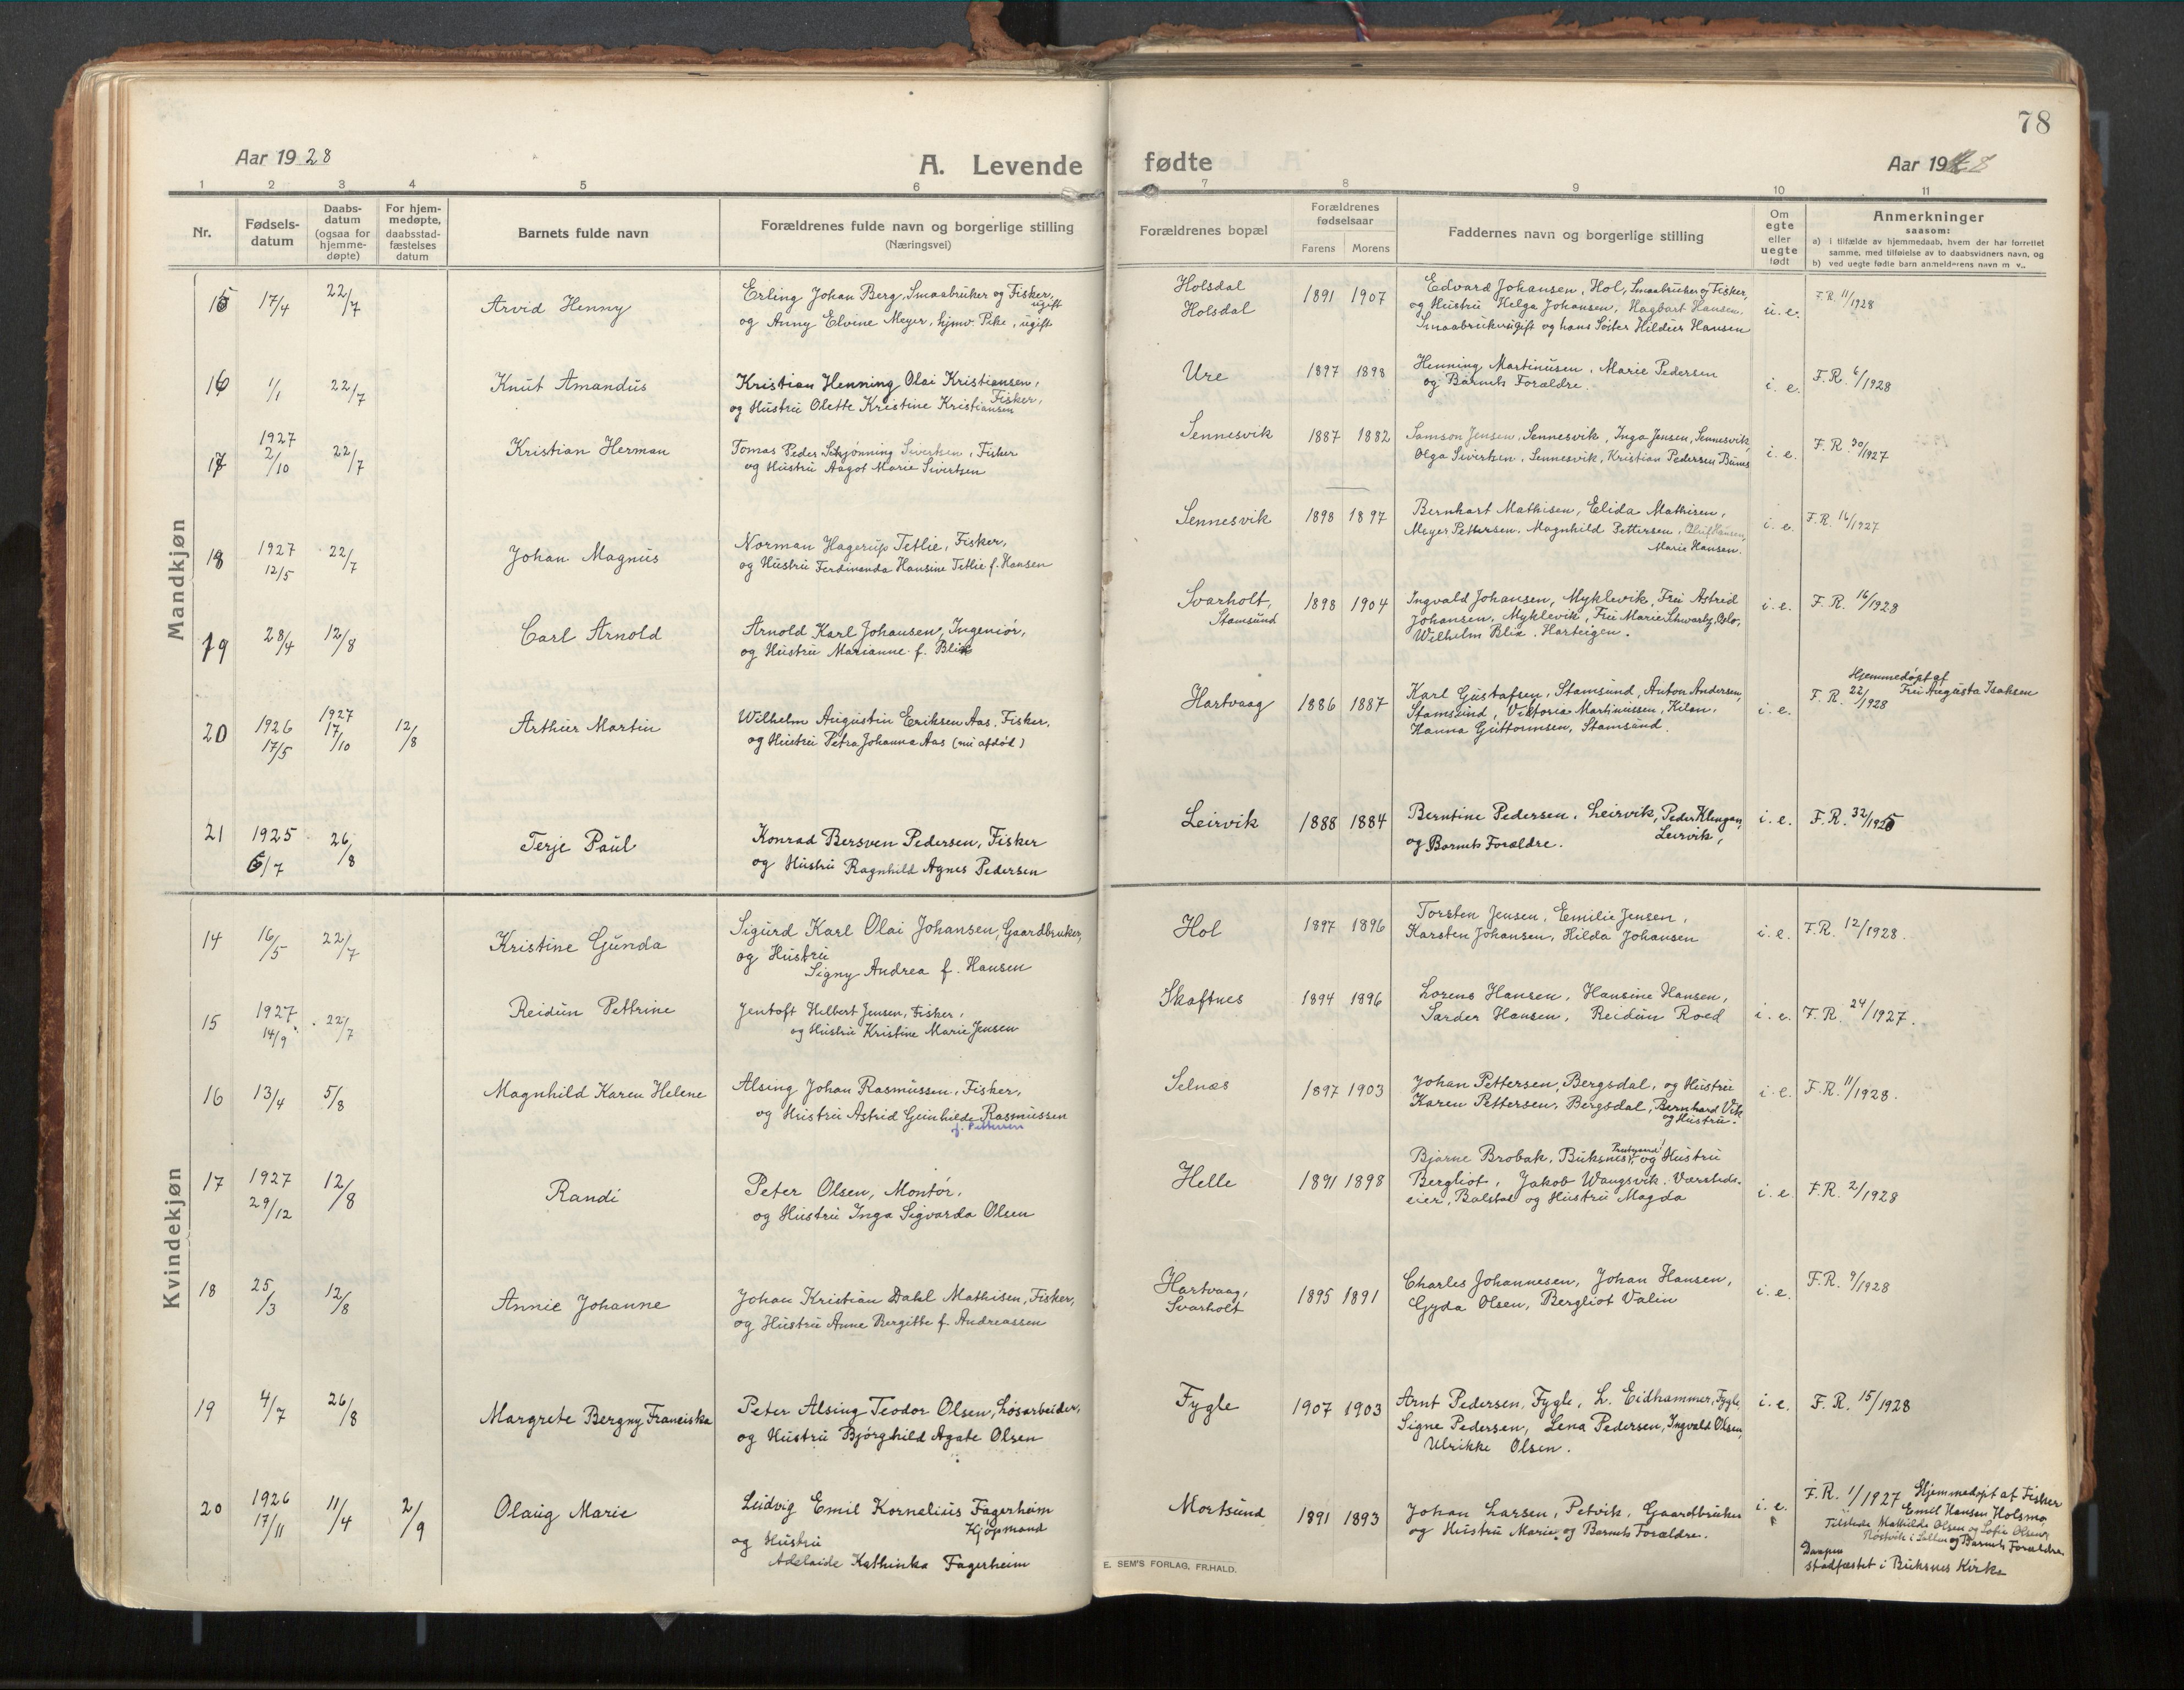 78
Aar 1928
A. Levende fødte
Aar 19
1 2 3 4 5 6 7 8 9 10 11
Nr.
Fødsels-
datum
Daabs-
datum
(ogsaa for
hjemme-
døpte)
For hjem-
medøpte,
daabsstad-
fæstelses
datum
Barnets fulde navn
Forældrenes fulde navn og borgerlige stilling
(Næringsvei)
Forældrenes bopæl
Forældrenes
fødselsaar
Farens Morens
Faddernes navn og borgerlige stilling
Om
egte
eller
uegte
født
Anmerkninger
saasom:
a) i tilfælde av hjemmedaab, hvem der har forrettet
samme, med tilføielse av to daabsvidners navn, og
b) ved uegte fødte barn anmelderens navn m v..
Mandkjøn
15 17/4 22/7 Arvid Henny
Erling Johan Berg, Smaabruker og Fisker, ugift
og Anny Elvine Meyer, hjmv. Pike, ugift
Holsdal
Holsdal
1891 1907
Edvard Johansen, Hol, Smaabruker og Fisker,
og Hustru Helga Johansen, Hagbart Hansen,
Smaabruker ugift og hans Søster Hildur Hansen
u. e.
F.R. 11/1928
16 1/1 22/7 Knut Amandus
Kristian Henning Olai Kristiansen,
Fisker,
og Hustru Olette Kristine Kristiansen
Ure 1897 1898
Henning Martinusen, Marie Pedersen
og Barnets Forældre.
i. e.
F. R. 6/1928
17 1927 2/10 22/7 Kristian Herman
Tomas Peder Schjønning Sivertsen, Fisker
og Hustru Aagot Marie Sivertsen
Sennesvik 1887 1882
Samson Jensen, Sennesvik, Inga Jensen, Sennesvik,
Olga Sivertsen, Sennesvik, Kristian Pedersen
i. e.
F. R. 30/1927
18 1927 12/5 22/7 Johan Magnus
Norman Hagerup Tetlie, Fisker,
og Hustru Ferdinanda Hansine Tetlie f. Hansen
Sennesvik 1898 1897
Bernhart Mathisen, Elida Mathisen,
Meyer Pettersen, Magnhild Pettersen, Oluf Hansen,
Marie Hansen.
i. e.
F. R. 16/1927
19 28/4 12/8 Carl Arnold
Arnold Karl Johansen, Ingeniør,
og Hustru Marianne f. Blix
Svarholt,
Stamsund
1898 1904
Ingvald Johansen, Myklevik, Fru Astrid
Johansen, Myklevik, Fru Marie Oslo,
Wilhelm Blix, Harteigen.
i. e.
F. R. 16/1928
20 1926 17/5 1927 17/10 12/8 Arthur Martin
Wilhelm Augustin Eriksen Aas, Fisker,
og Hustru Petra Johanna Aas (nu afdød)
Hartvaag 1886 1887
Karl Gustafsen, Stamsund, Anton Andersen,
Stamsund, Viktoria Martinussen, Kilan,
Hanna Guttormsen, Stamsund.
i. e.
Hjemmedøpt af
F. R. 22/1928 Fru Augusta Isaksen
21 1925 6/7 26/8 Terje Paul
Konrad Bersven Pedersen, Fisker
og Hustru Ragnhild Agnes Pedersen
Leirvik 1888 1884
Berntine Pedersen, Leirvik, Peder Klengan,
Leirvik,
og Barnets Forældre.
i. e.
F. R. 32/1925
Kvindekjøn
14 16/5 22/7 Kristine Gunda
Sigurd Karl Olai Johansen, Gaardbruker,
og Hustru
Signy Andrea f. Hansen
Hol 1897 1896
Torsten Jensen, Emilie Jensen,
Karsten Johansen, Hilda Johansen
i. e.
F.R. 12/1928.
15 1927 14/9 22/7 Reidun Pettrine
Jentoft Hilbert Jensen, Fisker,
og Hustru Kristine Marie Jensen
Skaftnes 1894 1896
Lorens Hansen, Hansine Hansen,
Sarder Hansen, Reidun Roed
i. e.
F. R. 24/1927.
16 13/4 5/8 Magnhild Karen Helene
Alsing Johan Rasmussen, Fisker,
og Hustru Astrid Gunhilde Rasmussen
f. Pettersen
Selnæs 1897 1903
Johan Pettersen, Bergsdal, og Hustru
Karen Pettersen, Bergsdal, Bernhard Vik
og Hustru.
i. e.
F. R. 11/1928.
17 1927 29/12 12/8 Randi
Peter Olsen, Montør,
og Hustru Inga Sigvarda Olsen
Helle 1891 1898
Bjarne Brobak, Buksnes, og Hustru
Bergliot, Jakob Wangsvik, Værksteds-
eier, Balstad og Hustru Magda
i. e.
F. R. 2/1928
18 25/3 12/8 Annie Johanne
Johan Kristian Dahl Mathisen, Fisker,
og Hustru Anne Bergitte f. Andreassen
Hartvaag,
Svarholt
1895 1891
Charles Johannesen, Johan Hansen,
Gyda Olsen, Bergliot Valin
i. e.
F. R. 9/1928
19 4/7 26/8 Margrete Bergny Franciska
Peter Alsing Teodor Olsen, Løsarbeider,
og Hustru Bjørghild Agate Olsen
Fygle 1907 1903
Arnt Pedersen, Fygle, L. Eidhammer, Fygle,
Signe Pedersen, Lena Pedersen, Ingvald Olsen,
Ulrikke Olsen.
i. e.
F. R. 15/1928
20 1926 17/11 11/4 2/9 Olaug Marie
Ludvig Emil Kornelius Fagerheim
Kjøpmand
og Hustru
Adelaide Kathinka Fagerheim
Mortsund 1891 1893
Johan Larsen, Petvik, Gaardbruker
og Hustru Marie, og Barnets Forældre.
i. e.
F. R. 1/1927 Hjemmedøpt af Fisker
Emil Hansen Holsmo
Tilstede Mathilde Olsen og Sofie Olsen,
og Barnets Forældre
Daapen
stadfæstet i Buksnes Kirke
E. SEM'S FORLAG, FR.HALD.